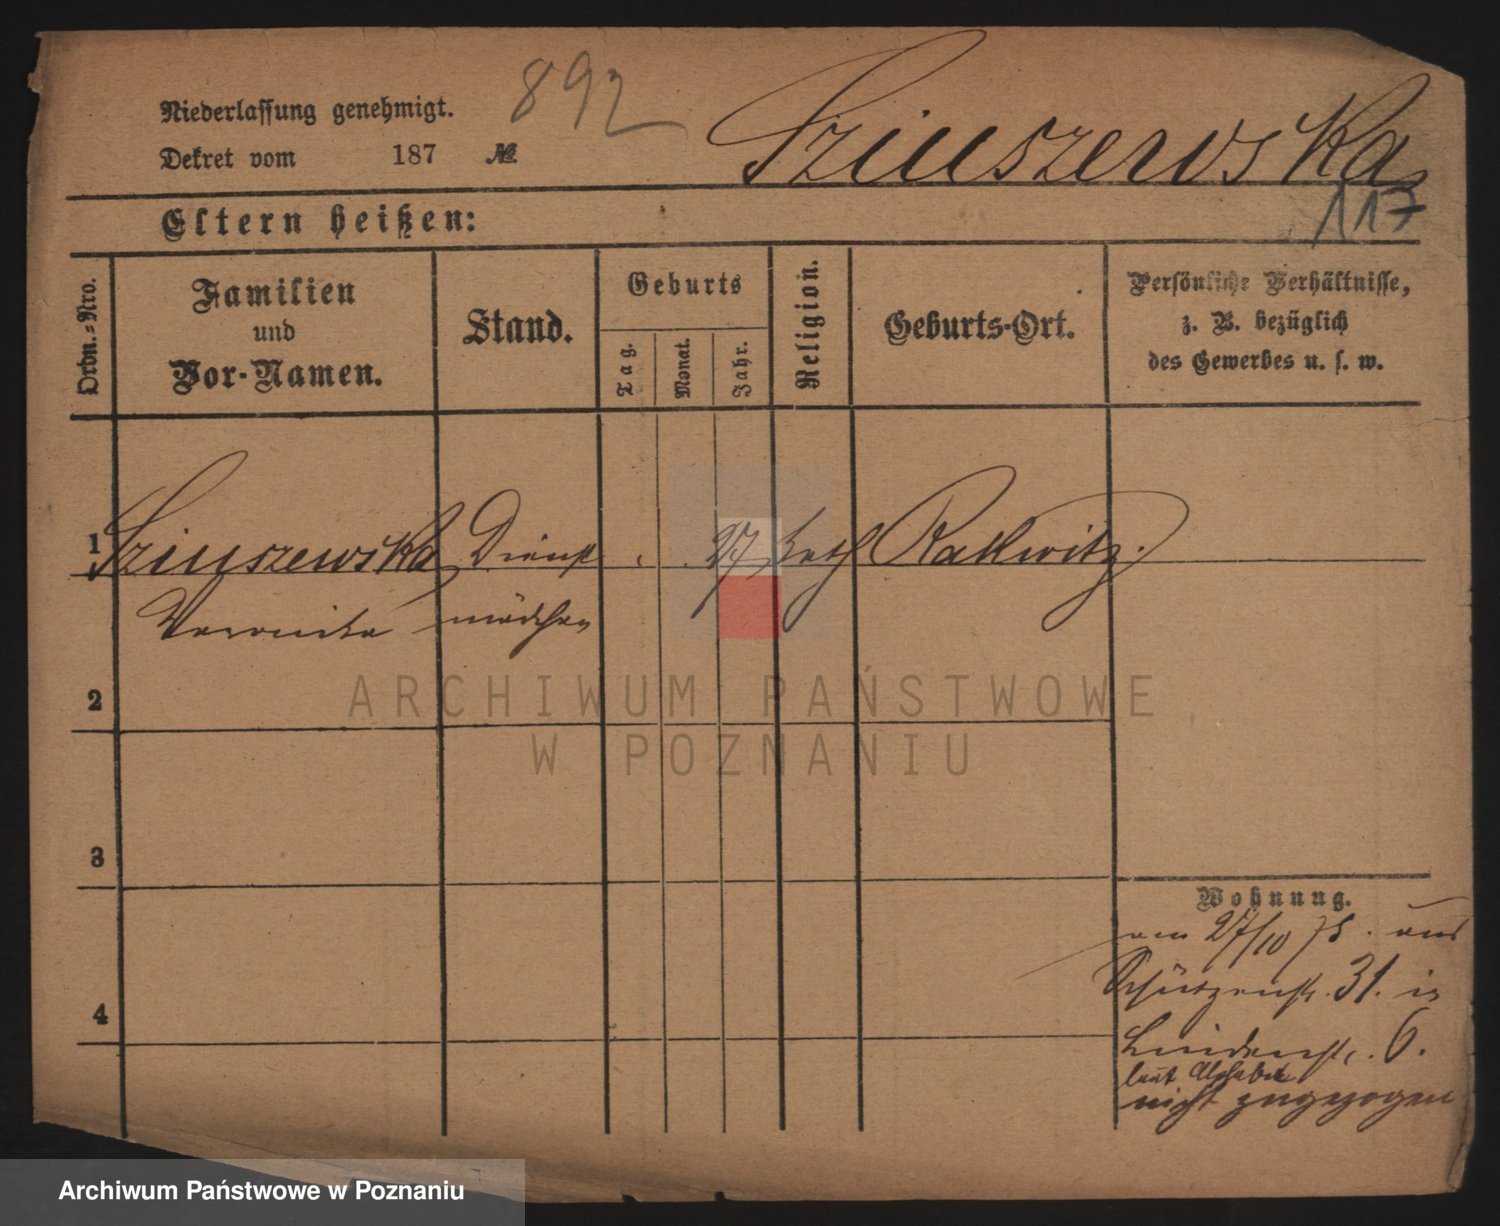 Niederlassung genehmigt.
892
Dekret vom 187 №
Sziuszewska
117
Eltern heißen:
Ordn.-Nro.
Familien
und
Vor-Namen.
Stand.
Geburts
Tag.
Monat.
Jahr.
Religion.
Geburts-Ort.
Persönliche Verhältnisse,
z. B. bezüglich
des Gewerbes u. s. w.
1 Sziuszewska Dienst 27 kath Rakwitz.
Veronika mädchen
2
3
4
Wohnung.
am 27/10 78. aus
Schützenstr. 31. in
Lindenstr. 6.
laut Alphabet
nicht zugezogen
ARCHIWUM PAŃSTWOWE
W POZNANIU
Archiwum Państwowe w Poznaniu